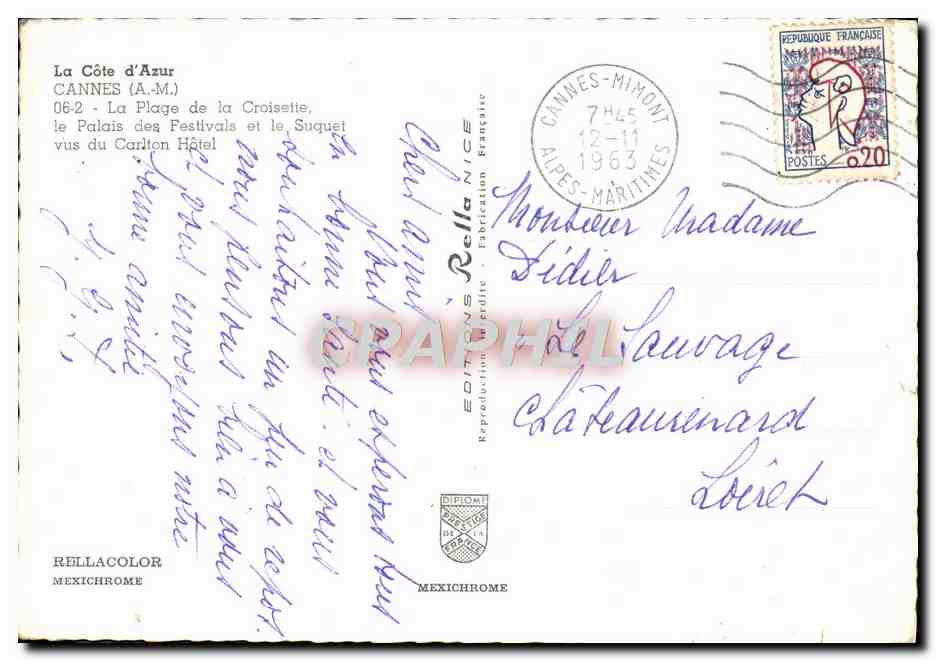 La Côte d'Azur
CANNES (A.-M.)
06-2 - La Plage de la Croisette,
le Palais des Festivals et le Suquet
vus du Carlton Hôtel
Chers amis
Nous espérons tout
la bonne santé. et vous
souhaitons un peu de repos.
nous pensons à vous
et vous envoyons notre
bonne amitié
EDITIONS Rella NICE
Reproduction interdite - Fabrication Française
CANNES-MIMONT
7H45
12-11
1963
ALPES-MARITIMES
REPUBLIQUE FRANÇAISE
POSTES 0,20
Monsieur Madame
Didier
Le Sauvage
Châteaurenard
Loiret
CRAPHIL
DIPLOME
PRESTIGE
DE LA
FRANCE
RELLACOLOR
MEXICHROME
MEXICHROME